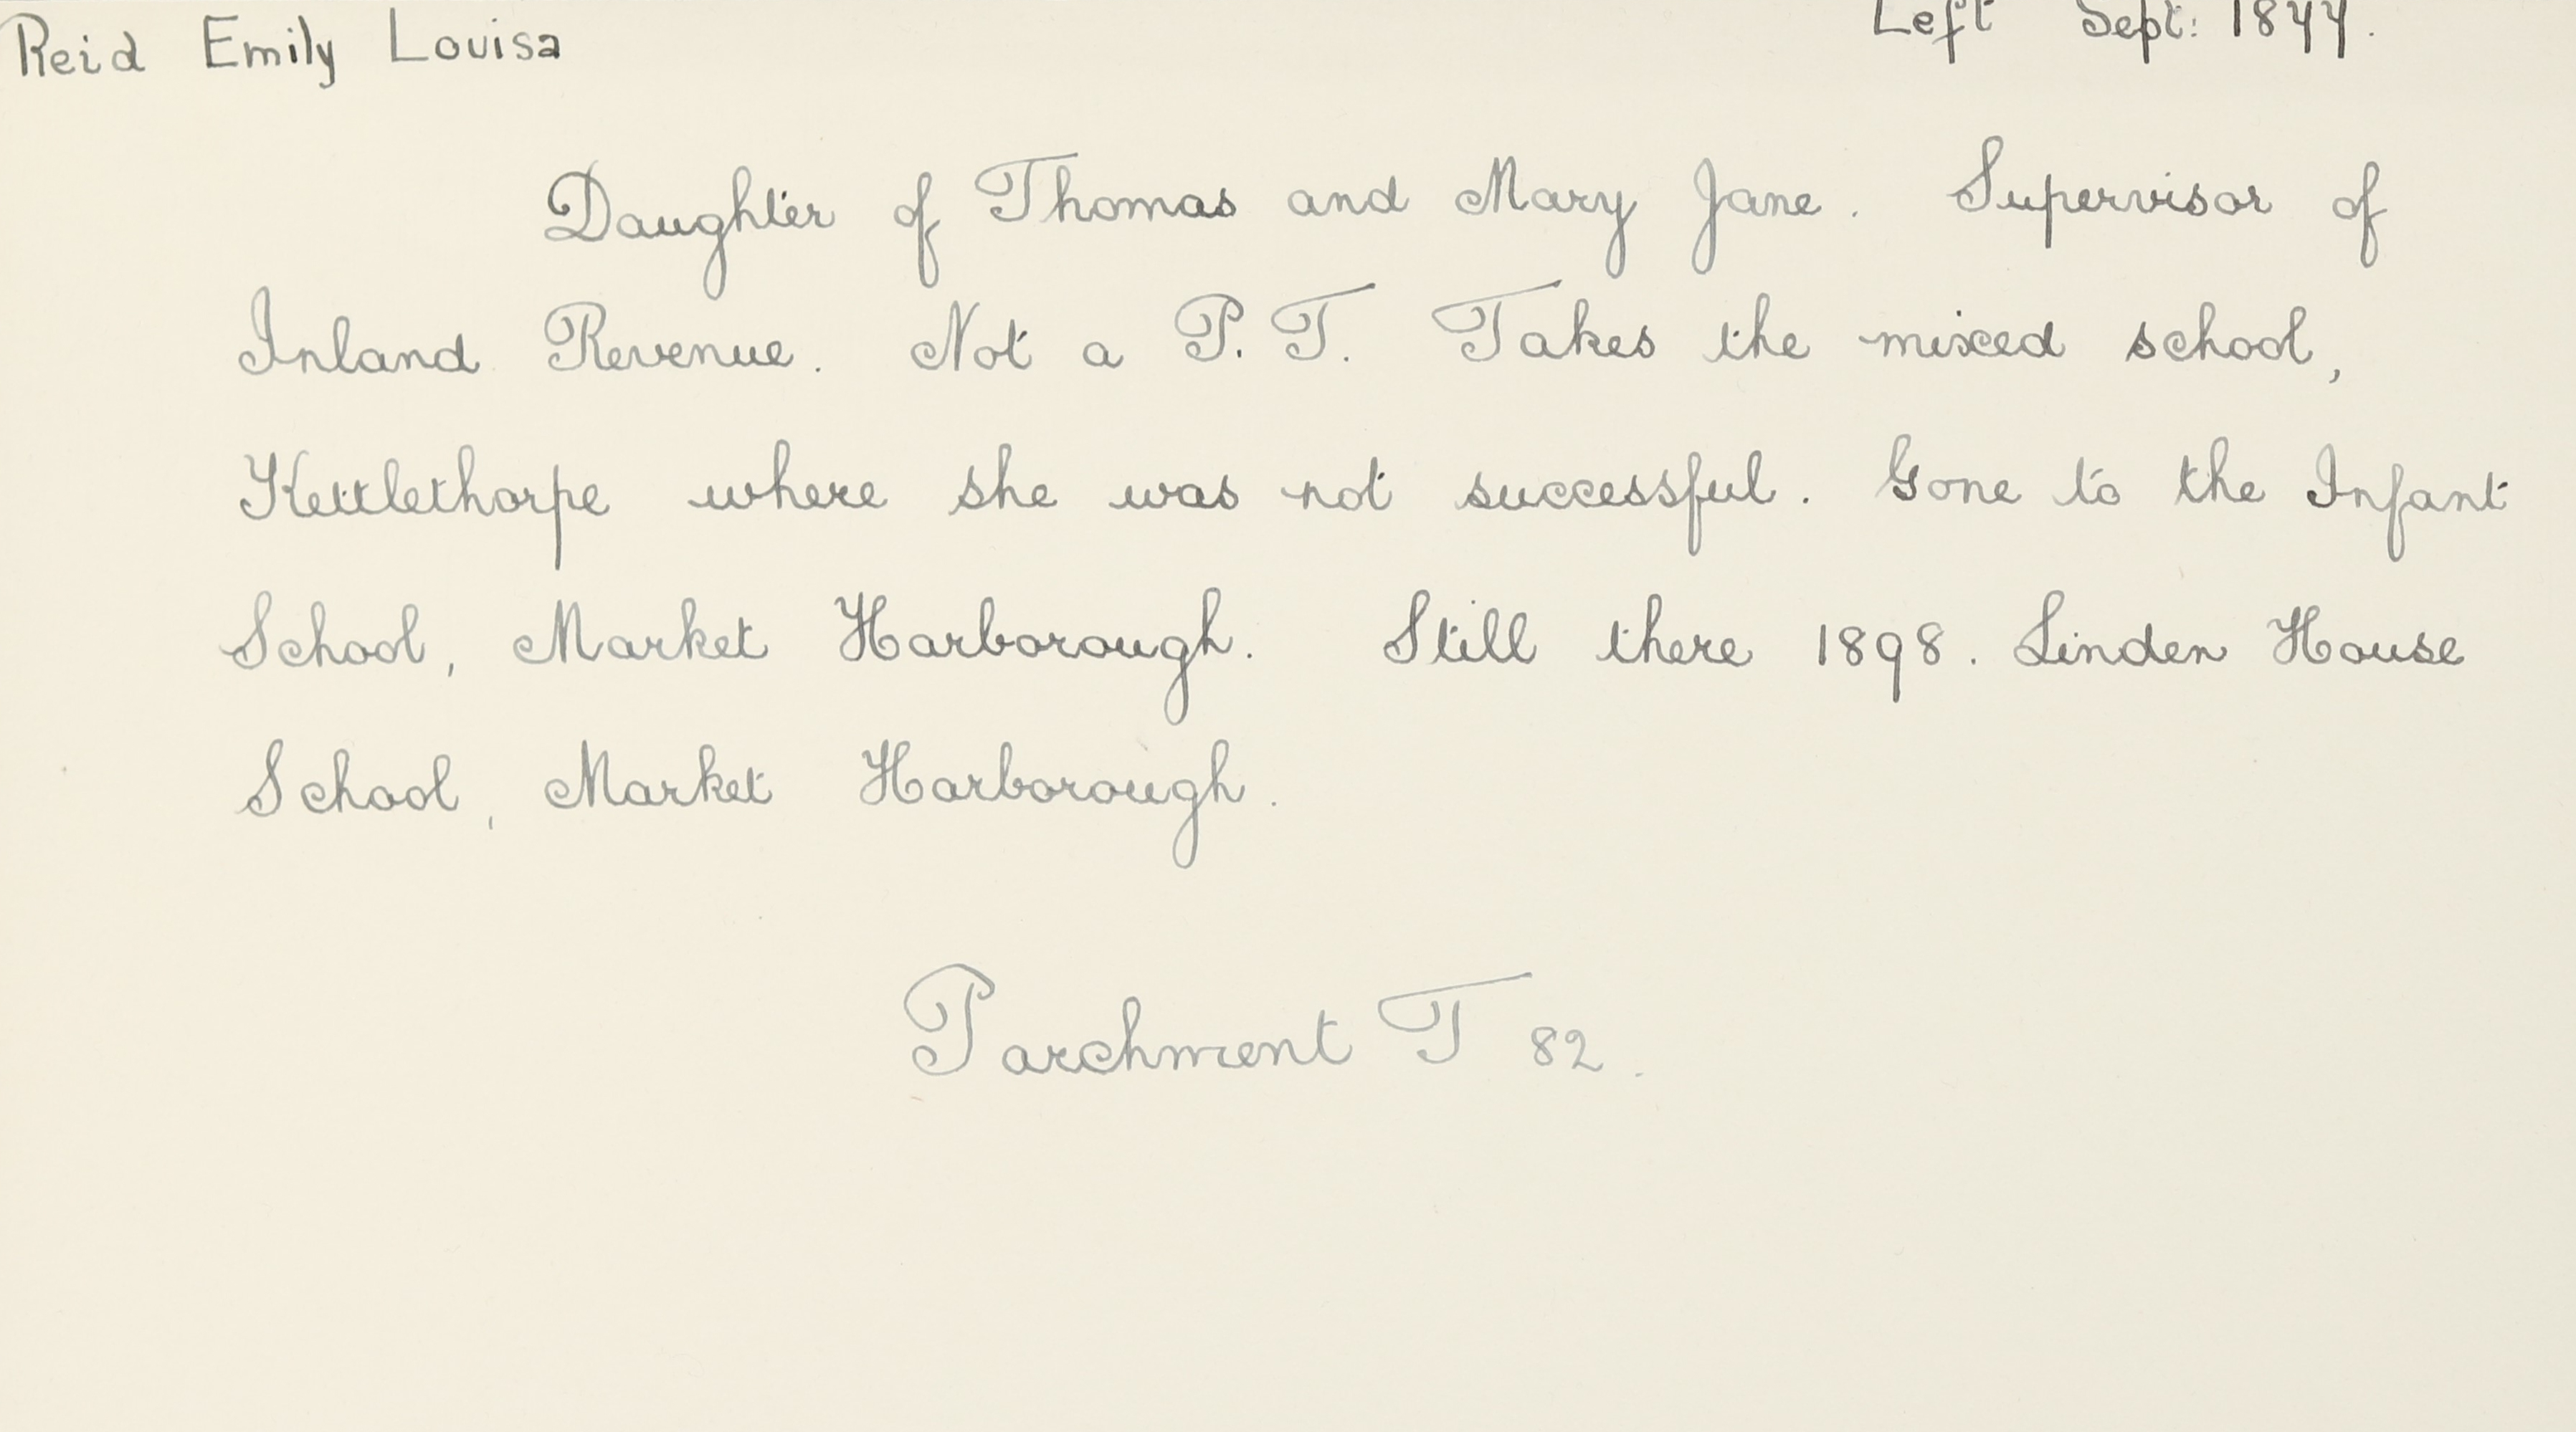 Reid Emily Louisa Left Sept: 1877.
Daughter of Thomas and Mary Jane. Supervisor of
Inland Revenue. Not a P.T. Takes the mixed school,
Kettlethorpe where she was not successful. Gone to the Infant
School, Market Harborough. Still there 1898. Linden House
School, Market Harborough.
Parchment T 82.